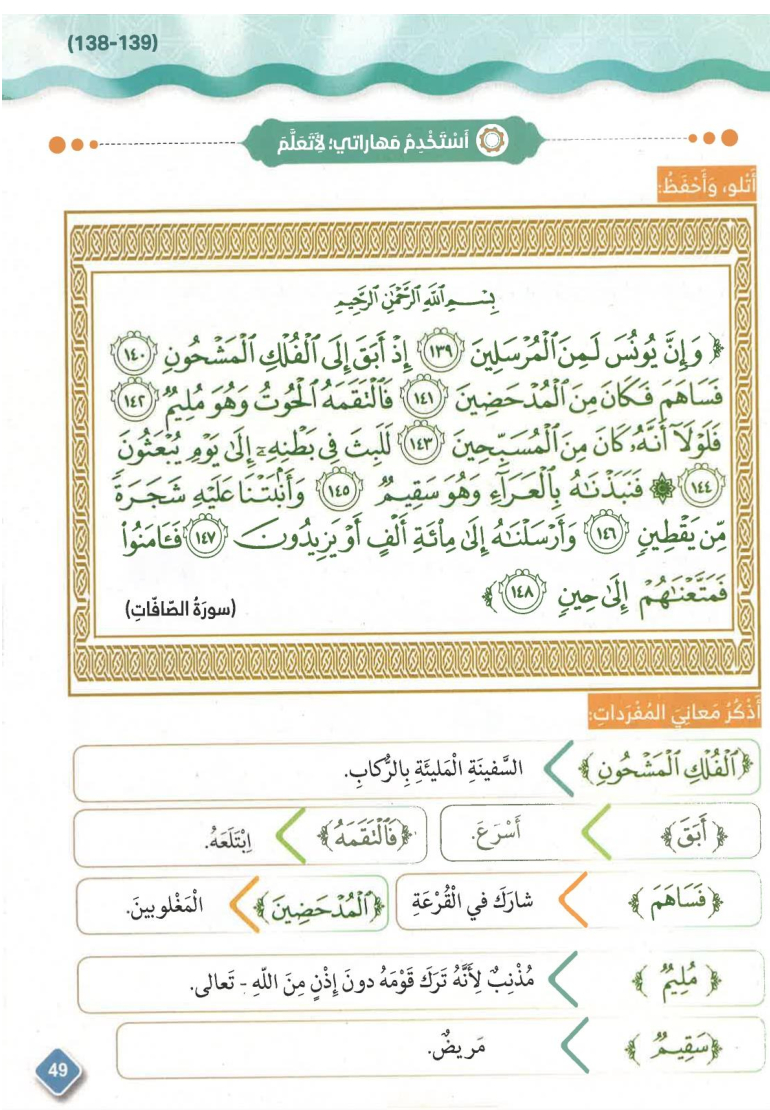 (138-139)
أَسْتَخْدِمُ مَهاراتي؛ لِأَتَعَلَّمَ
أَتْلو، وَأَحْفَظُ:
بِسْمِ اللَّهِ الرَّحْمَٰنِ الرَّحِيمِ
﴿ وَإِنَّ يُونُسَ لَمِنَ الْمُرْسَلِينَ ١٣٩ إِذْ أَبَقَ إِلَى الْفُلْكِ الْمَشْحُونِ ١٤٠
فَسَاهَمَ فَكَانَ مِنَ الْمُدْحَضِينَ ١٤١ فَالْتَقَمَهُ الْحُوتُ وَهُوَ مُلِيمٌ ١٤٢
فَلَوْلَآ أَنَّهُۥ كَانَ مِنَ الْمُسَبِّحِينَ ١٤٣ لَلَبِثَ فِي بَطْنِهِۦٓ إِلَىٰ يَوْمِ يُبْعَثُونَ
١٤٤ ۞ فَنَبَذْنَٰهُ بِالْعَرَآءِ وَهُوَ سَقِيمٌ ١٤٥ وَأَنۢبَتْنَا عَلَيْهِ شَجَرَةً
مِّن يَقْطِينٍ ١٤٦ وَأَرْسَلْنَٰهُ إِلَىٰ مِا۟ئَةِ أَلْفٍ أَوْ يَزِيدُونَ ١٤٧ فَـَٔامَنُوا۟
فَمَتَّعْنَٰهُمْ إِلَىٰ حِينٍ ١٤٨ ﴾
(سورَةُ الصّافّاتِ)
أَذْكُرُ مَعانِيَ المُفْرَداتِ:
﴿الْفُلْكِ الْمَشْحُونِ﴾ السَّفينَةِ الْمَليئَةِ بِالرُّكابِ.
﴿ أَبَقَ﴾ أَسْرَعَ. ﴿فَالْتَقَمَهُ﴾ اِبْتَلَعَهُ.
﴿فَسَاهَمَ ﴾ شارَكَ في الْقُرْعَةِ ﴿الْمُدْحَضِينَ﴾ الْمَغْلوبينَ.
﴿ مُلِيمٌ ﴾ مُذْنِبٌ لِأَنَّهُ تَرَكَ قَوْمَهُ دونَ إِذْنٍ مِنَ اللّهِ - تَعالى.
﴿سَقِيمٌ ﴾ مَريضٌ.
49